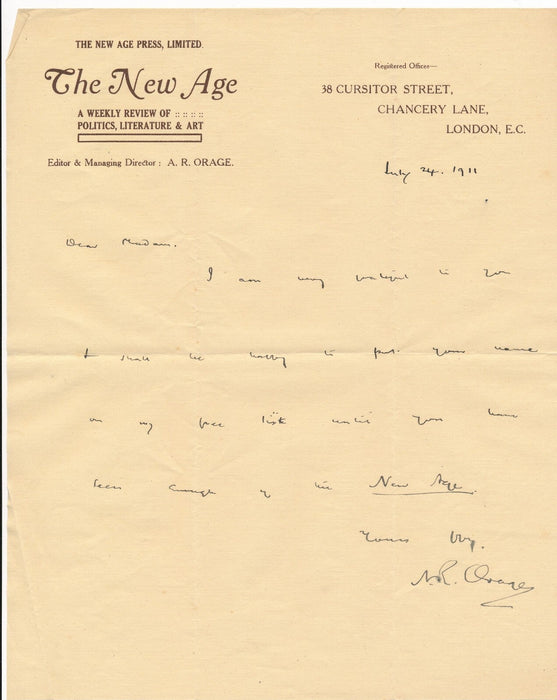 THE NEW AGE PRESS, LIMITED.
The New Age
A WEEKLY REVIEW OF :: :: :: ::
POLITICS, LITERATURE & ART
Editor & Managing Director : A. R. ORAGE.
Registered Offices—
38 CURSITOR STREET,
CHANCERY LANE,
LONDON, E.C.
July 24. 1911
Dear Madam.
I am very grateful to you
& shall be happy to put your name
on my free list until you have
seen enough of the New Age.
Yours
A. R. Orage